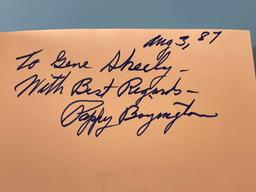 Aug 3, 87
To Gene Sheely –
With Best Regards –
Pappy Boyington